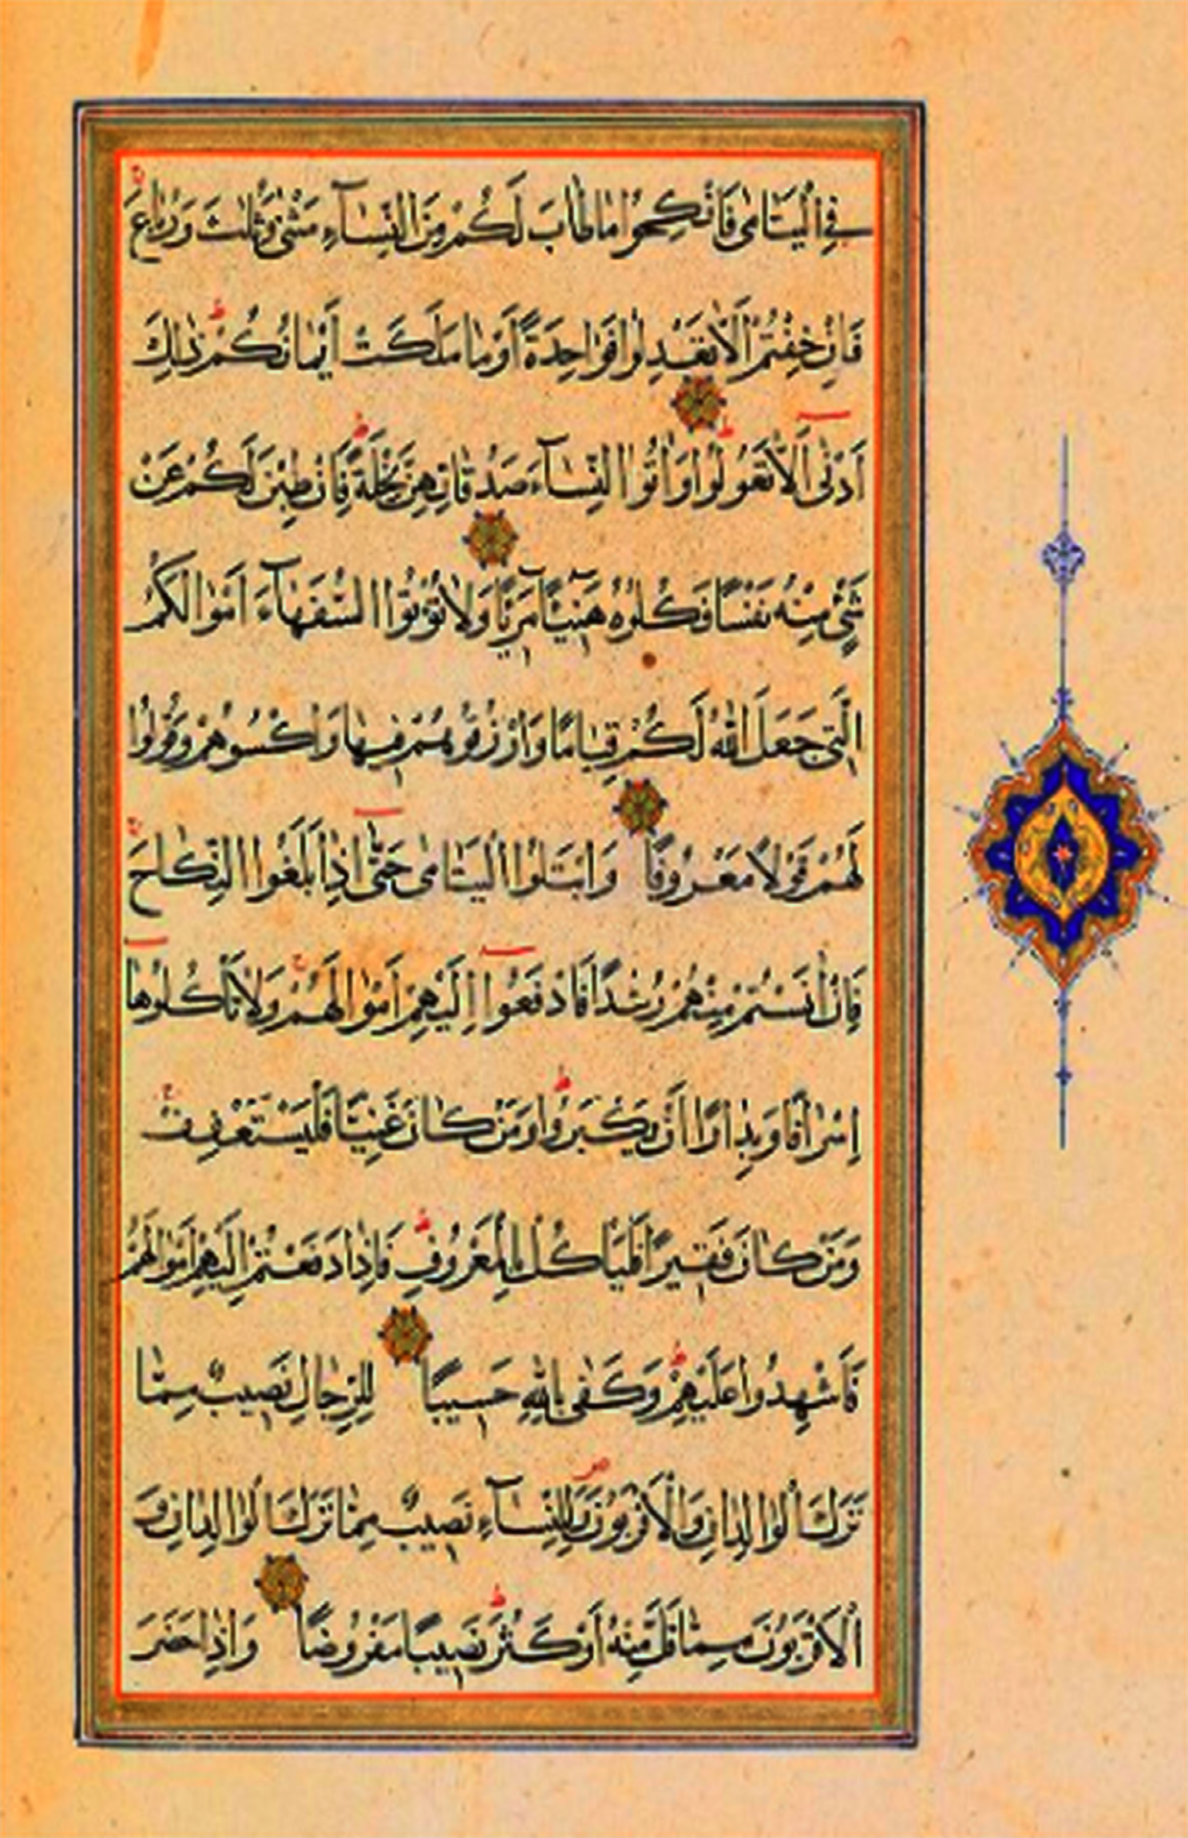 فِي الْيَتَامٰى فَانْكِحُوا مَا طَابَ لَكُمْ مِنَ النِّسَآءِ مَثْنٰى وَثُلٰثَ وَرُبَاعَ
فَاِنْ خِفْتُمْ اَلَّا تَعْدِلُوا فَوَاحِدَةً اَوْ مَا مَلَكَتْ اَيْمَانُكُمْ ذٰلِكَ
اَدْنٰى اَلَّا تَعُولُوا وَاٰتُوا النِّسَآءَ صَدُقَاتِهِنَّ نِحْلَةً فَاِنْ طِبْنَ لَكُمْ عَنْ
شَيْءٍ مِنْهُ نَفْسًا فَكُلُوهُ هَنِيٓئًا مَرِيٓئًا وَلَا تُؤْتُوا السُّفَهَآءَ اَمْوَالَكُمُ
الَّتِي جَعَلَ اللّٰهُ لَكُمْ قِيَامًا وَارْزُقُوهُمْ فِيهَا وَاكْسُوهُمْ وَقُولُوا
لَهُمْ قَوْلًا مَعْرُوفًا وَابْتَلُوا الْيَتَامٰى حَتّٰى اِذَا بَلَغُوا النِّكَاحَ
فَاِنْ اٰنَسْتُمْ مِنْهُمْ رُشْدًا فَادْفَعُوا اِلَيْهِمْ اَمْوَالَهُمْ وَلَا تَأْكُلُوهَا
اِسْرَافًا وَبِدَارًا اَنْ يَكْبَرُوا وَمَنْ كَانَ غَنِيًّا فَلْيَسْتَعْفِفْ
وَمَنْ كَانَ فَقِيرًا فَلْيَأْكُلْ بِالْمَعْرُوفِ فَاِذَا دَفَعْتُمْ اِلَيْهِمْ اَمْوَالَهُمْ
فَاَشْهِدُوا عَلَيْهِمْ وَكَفٰى بِاللّٰهِ حَسِيبًا لِلرِّجَالِ نَصِيبٌ مِمَّا
تَرَكَ الْوَالِدَانِ وَالْاَقْرَبُونَ وَلِلنِّسَآءِ نَصِيبٌ مِمَّا تَرَكَ الْوَالِدَانِ وَ
الْاَقْرَبُونَ مِمَّا قَلَّ مِنْهُ اَوْ كَثُرَ نَصِيبًا مَفْرُوضًا وَاِذَا حَضَرَ